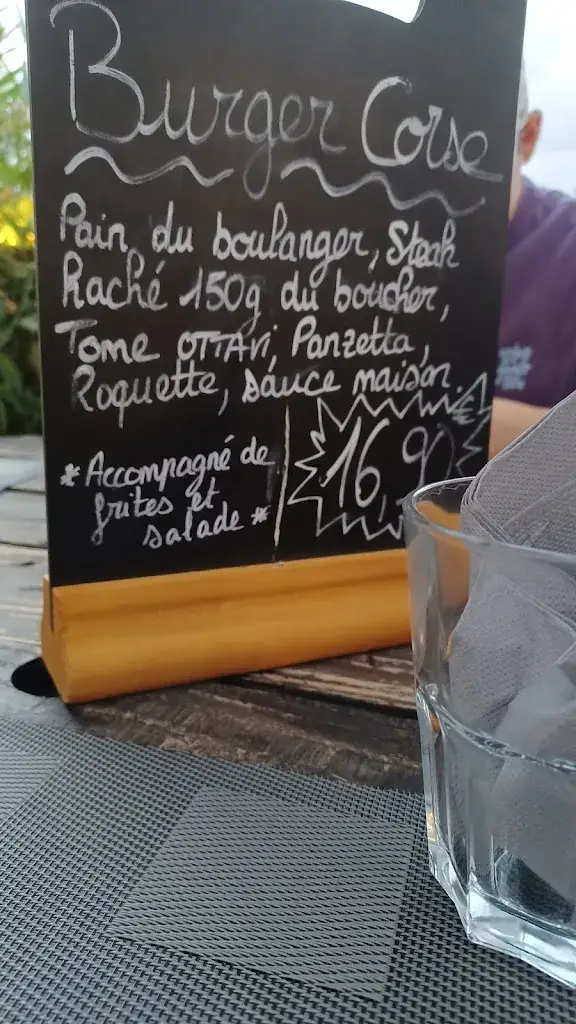 Burger Corse
Pain du boulanger, Steak
haché 150g du boucher,
Tome OTTAVi, Panzetta,
Roquette, sauce maison.
*Accompagné de
frites et
salade*
16,90€